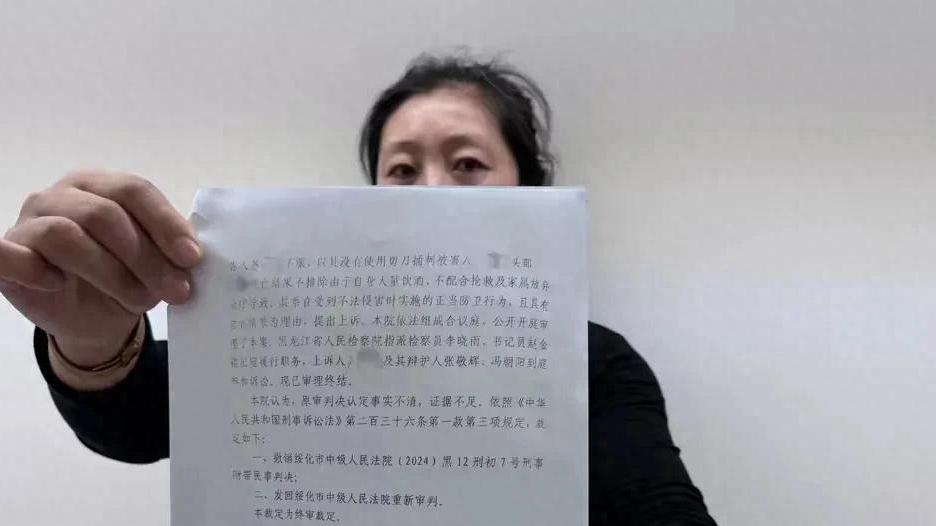 不服，以其没有使用剪刀捅刺被害人 头部
亡结果不排除由于自身大量饮酒、不配合抢救及家属放弃
治疗导致，其系在受到不法侵害时实施的正当防卫行为，且具有
情节为理由，提出上诉。本院依法组成合议庭，公开开庭审
理了本案。黑龙江省人民检察院指派检察员李晓雨、书记员赵金
出庭履行职务，上诉人 及其辩护人张敬辉、冯朝阳到庭
参加诉讼。现已审理终结。
本院认为，原审判决认定事实不清，证据不足。依照《中华
人民共和国刑事诉讼法》第二百三十六条第一款第三项规定，裁
定如下：
一、撤销绥化市中级人民法院（2024）黑12刑初7号刑事
附带民事判决；
二、发回绥化市中级人民法院重新审判。
本裁定为终审裁定。